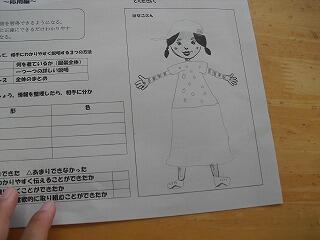 ～応用編～
を習得できるようになる。
に正確にできるだけわかりやす
になる。
て、相手にわかりやすく説明する3つの方法
何を着ているか（服装全体）
一つ一つの詳しい説明
ース 全体のまとめ
しょう。情報を整理したら、相手に分か
形 色
できた △あまりできなかった
わかりやすく伝えることができたか
くことができたか
意欲的に取り組むことができたか
はなこさん